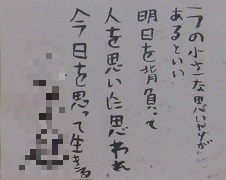 今の小さな思いやりが
あるといい
明日を背負って
人を思い人に思われ
今日を思って生きる